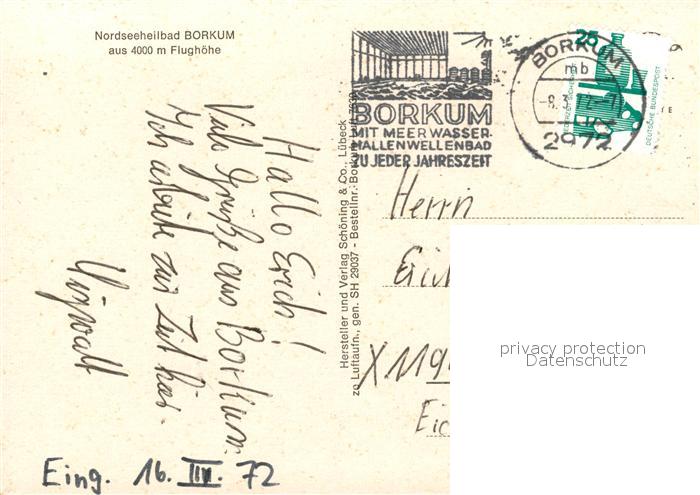 Nordseeheilbad BORKUM
aus 4000 m Flughöhe
BORKUM
MIT MEERWASSER-
HALLENWELLENBAD
ZU JEDER JAHRESZEIT
BORKUM
mb
2972
25
DEUTSCHE BUNDESPOST
Hallo Erich!
Viele Grüße aus Borkum.
Ich arbeite zur Zeit hier.
Hersteller und Verlag Schöning & Co., Lübeck
zo Luftaufn., gen. SH 29037 - Bestellnr.: Borkum
Herrn
X 119
privacy protection
Datenschutz
Eing. 16. III. 72